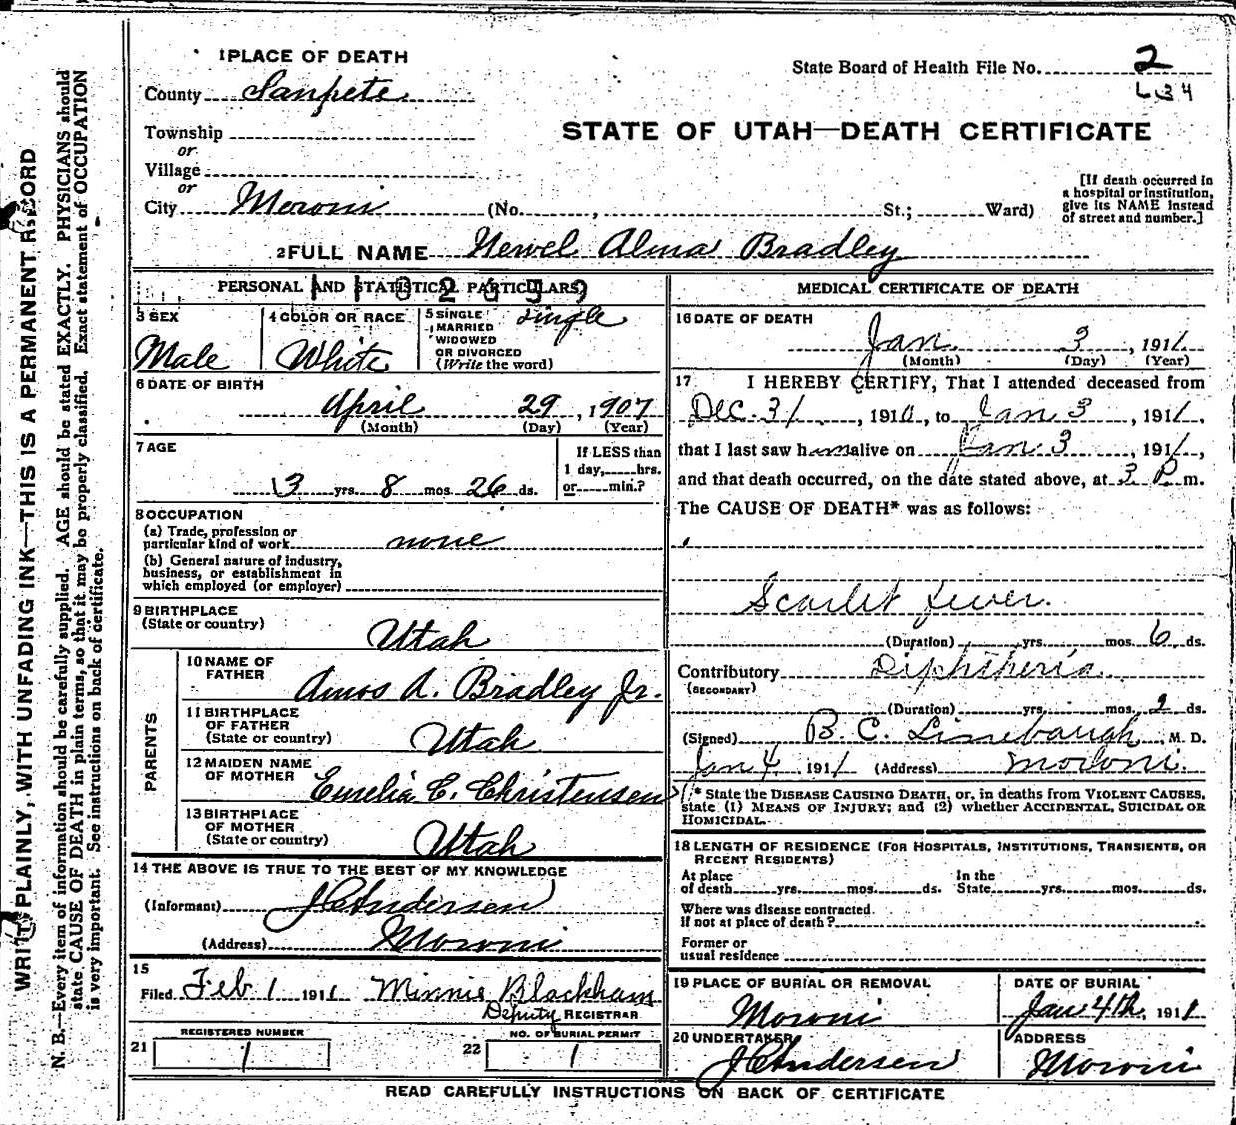 1 PLACE OF DEATH
State Board of Health File No. 2
County Sanpete
L 34
Township
STATE OF UTAH—DEATH CERTIFICATE
or
Village
or
City Moroni (No. , St.; Ward)
[If death occurred in a hospital or institution, give its NAME instead of street and number.]
2 FULL NAME Newel Alma Bradley
PERSONAL AND STATISTICAL PARTICULARS
3 SEX
Male
4 COLOR OR RACE
White
5 SINGLE
MARRIED
WIDOWED
OR DIVORCED
(Write the word)
Single
6 DATE OF BIRTH
April 29, 1907
(Month) (Day) (Year)
7 AGE
3 yrs. 8 mos. 26 ds.
If LESS than
1 day, hrs.
or min.?
8 OCCUPATION
(a) Trade, profession or
particular kind of work none
(b) General nature of industry,
business, or establishment in
which employed (or employer)
9 BIRTHPLACE
(State or country)
Utah
PARENTS
10 NAME OF
FATHER
Amos A. Bradley Jr.
11 BIRTHPLACE
OF FATHER
(State or country)
Utah
12 MAIDEN NAME
OF MOTHER
C. Christensen
13 BIRTHPLACE
OF MOTHER
(State or country)
Utah
14 THE ABOVE IS TRUE TO THE BEST OF MY KNOWLEDGE
(Informant) J C Andersen
(Address) Moroni
15
Filed Feb 1 1911 Minnie Blackham
Deputy REGISTRAR
REGISTERED NUMBER
21 1
NO. OF BURIAL PERMIT
22 1
MEDICAL CERTIFICATE OF DEATH
16 DATE OF DEATH
Jan 3, 1911
(Month) (Day) (Year)
17 I HEREBY CERTIFY, That I attended deceased from
Dec. 31, 1910, to Jan 3, 1911,
that I last saw him alive on Jan 3, 1911,
and that death occurred, on the date stated above, at 3 P m.
The CAUSE OF DEATH* was as follows:
Scarlet fever.
(Duration) yrs. mos. 6 ds.
Contributory Diphtheria
(SECONDARY)
(Duration) yrs. mos. 2 ds.
(Signed) B. C. Linebaugh, M. D.
Jan 4, 1911 (Address) Moroni.
* State the DISEASE CAUSING DEATH, or, in deaths from VIOLENT CAUSES,
state (1) MEANS OF INJURY; and (2) whether ACCIDENTAL, SUICIDAL OR
HOMICIDAL.
18 LENGTH OF RESIDENCE (FOR HOSPITALS, INSTITUTIONS, TRANSIENTS, OR
RECENT RESIDENTS)
At place
of death yrs. mos. ds.
In the
State yrs. mos. ds.
Where was disease contracted
if not at place of death?
Former or
usual residence
19 PLACE OF BURIAL OR REMOVAL
Moroni
DATE OF BURIAL
Jan 4th, 1911
20 UNDERTAKER
J C Andersen
ADDRESS
Moroni
READ CAREFULLY INSTRUCTIONS ON BACK OF CERTIFICATE
WRITE PLAINLY, WITH UNFADING INK—THIS IS A PERMANENT RECORD
N. B.—Every item of information should be carefully supplied. AGE should be stated EXACTLY. PHYSICIANS should
state CAUSE OF DEATH in plain terms, so that it may be properly classified. Exact statement of OCCUPATION
is very important. See instructions on back of certificate.